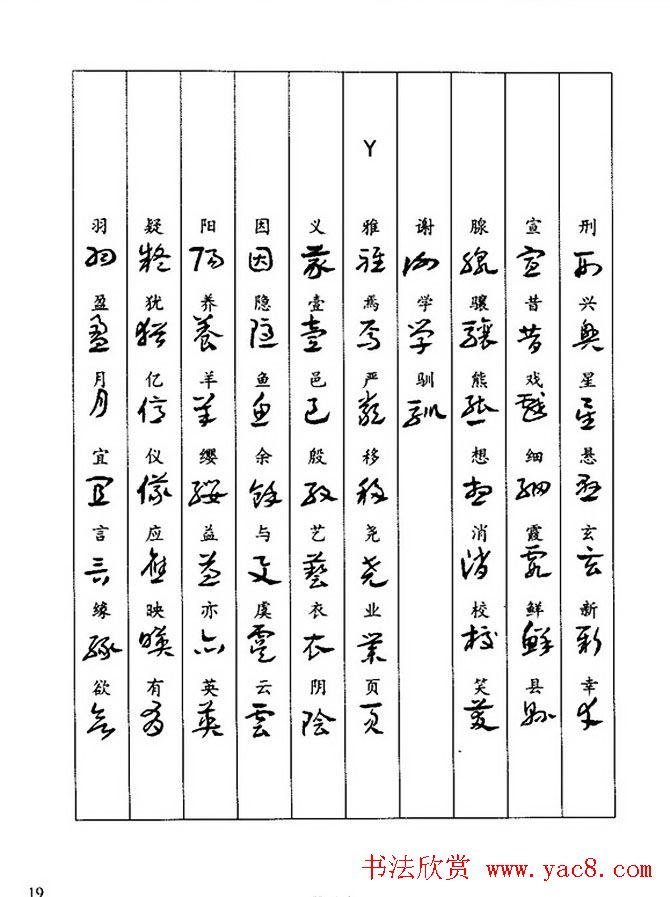 刑 兴 星 悬 玄 新 幸
宣 昔 戏 细 霞 鲜 县
腺 骧 熊 想 消 校 笑
谢 学 驯
Y
雅 焉 严 移 尧 业 页
义 壹 邑 殷 艺 衣 阴
因 隐 鱼 余 与 虞 云
阳 养 羊 缨 益 亦 英
疑 犹 亿 仪 应 映 有
羽 盈 月 宜 言 缘 欲
19
书法欣赏 www.yac8.com